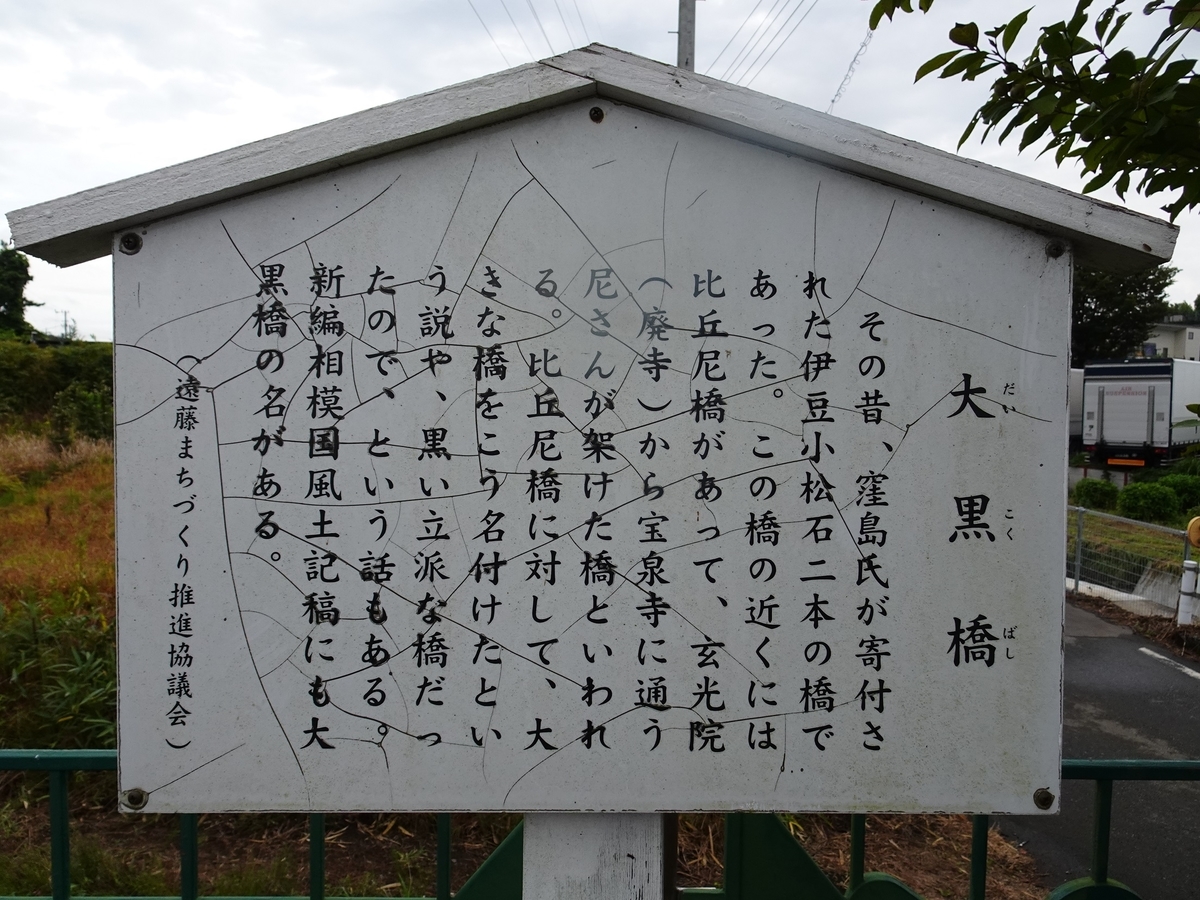 大黒橋
だいこくばし
その昔、窪島氏が寄付さ
れた伊豆小松石二本の橋で
あった。この橋の近くには
比丘尼橋があって、玄光院
（廃寺）から宝泉寺に通う
尼さんが架けた橋といわれ
る。比丘尼橋に対して、大
きな橋をこう名付けたとい
う説や、黒い立派な橋だっ
たので、という話もある。
新編相模国風土記稿にも大
黒橋の名がある。
（遠藤まちづくり推進協議会）